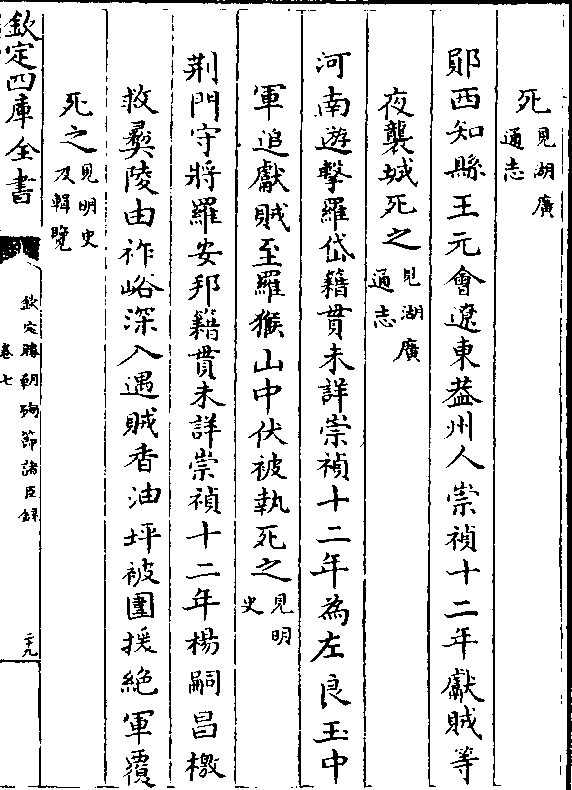 死見湖廣通志
鄖西知縣王元會遼東葢州人崇禎十二年獻賊等
夜襲城死之見湖廣通志
河南遊擊羅岱籍貫未詳崇禎十二年為左良玉中
軍追獻賊至羅㺅山中伏被執死之見明史
荆門守將羅安邦籍貫未詳崇禎十二年楊嗣昌檄
救彛陵由祚峪深入遇賊香油坪被圍援絶軍覆
死之見明史及輯覽
欽定四庫全書
欽定勝朝殉節諸臣錄
卷七
二十九